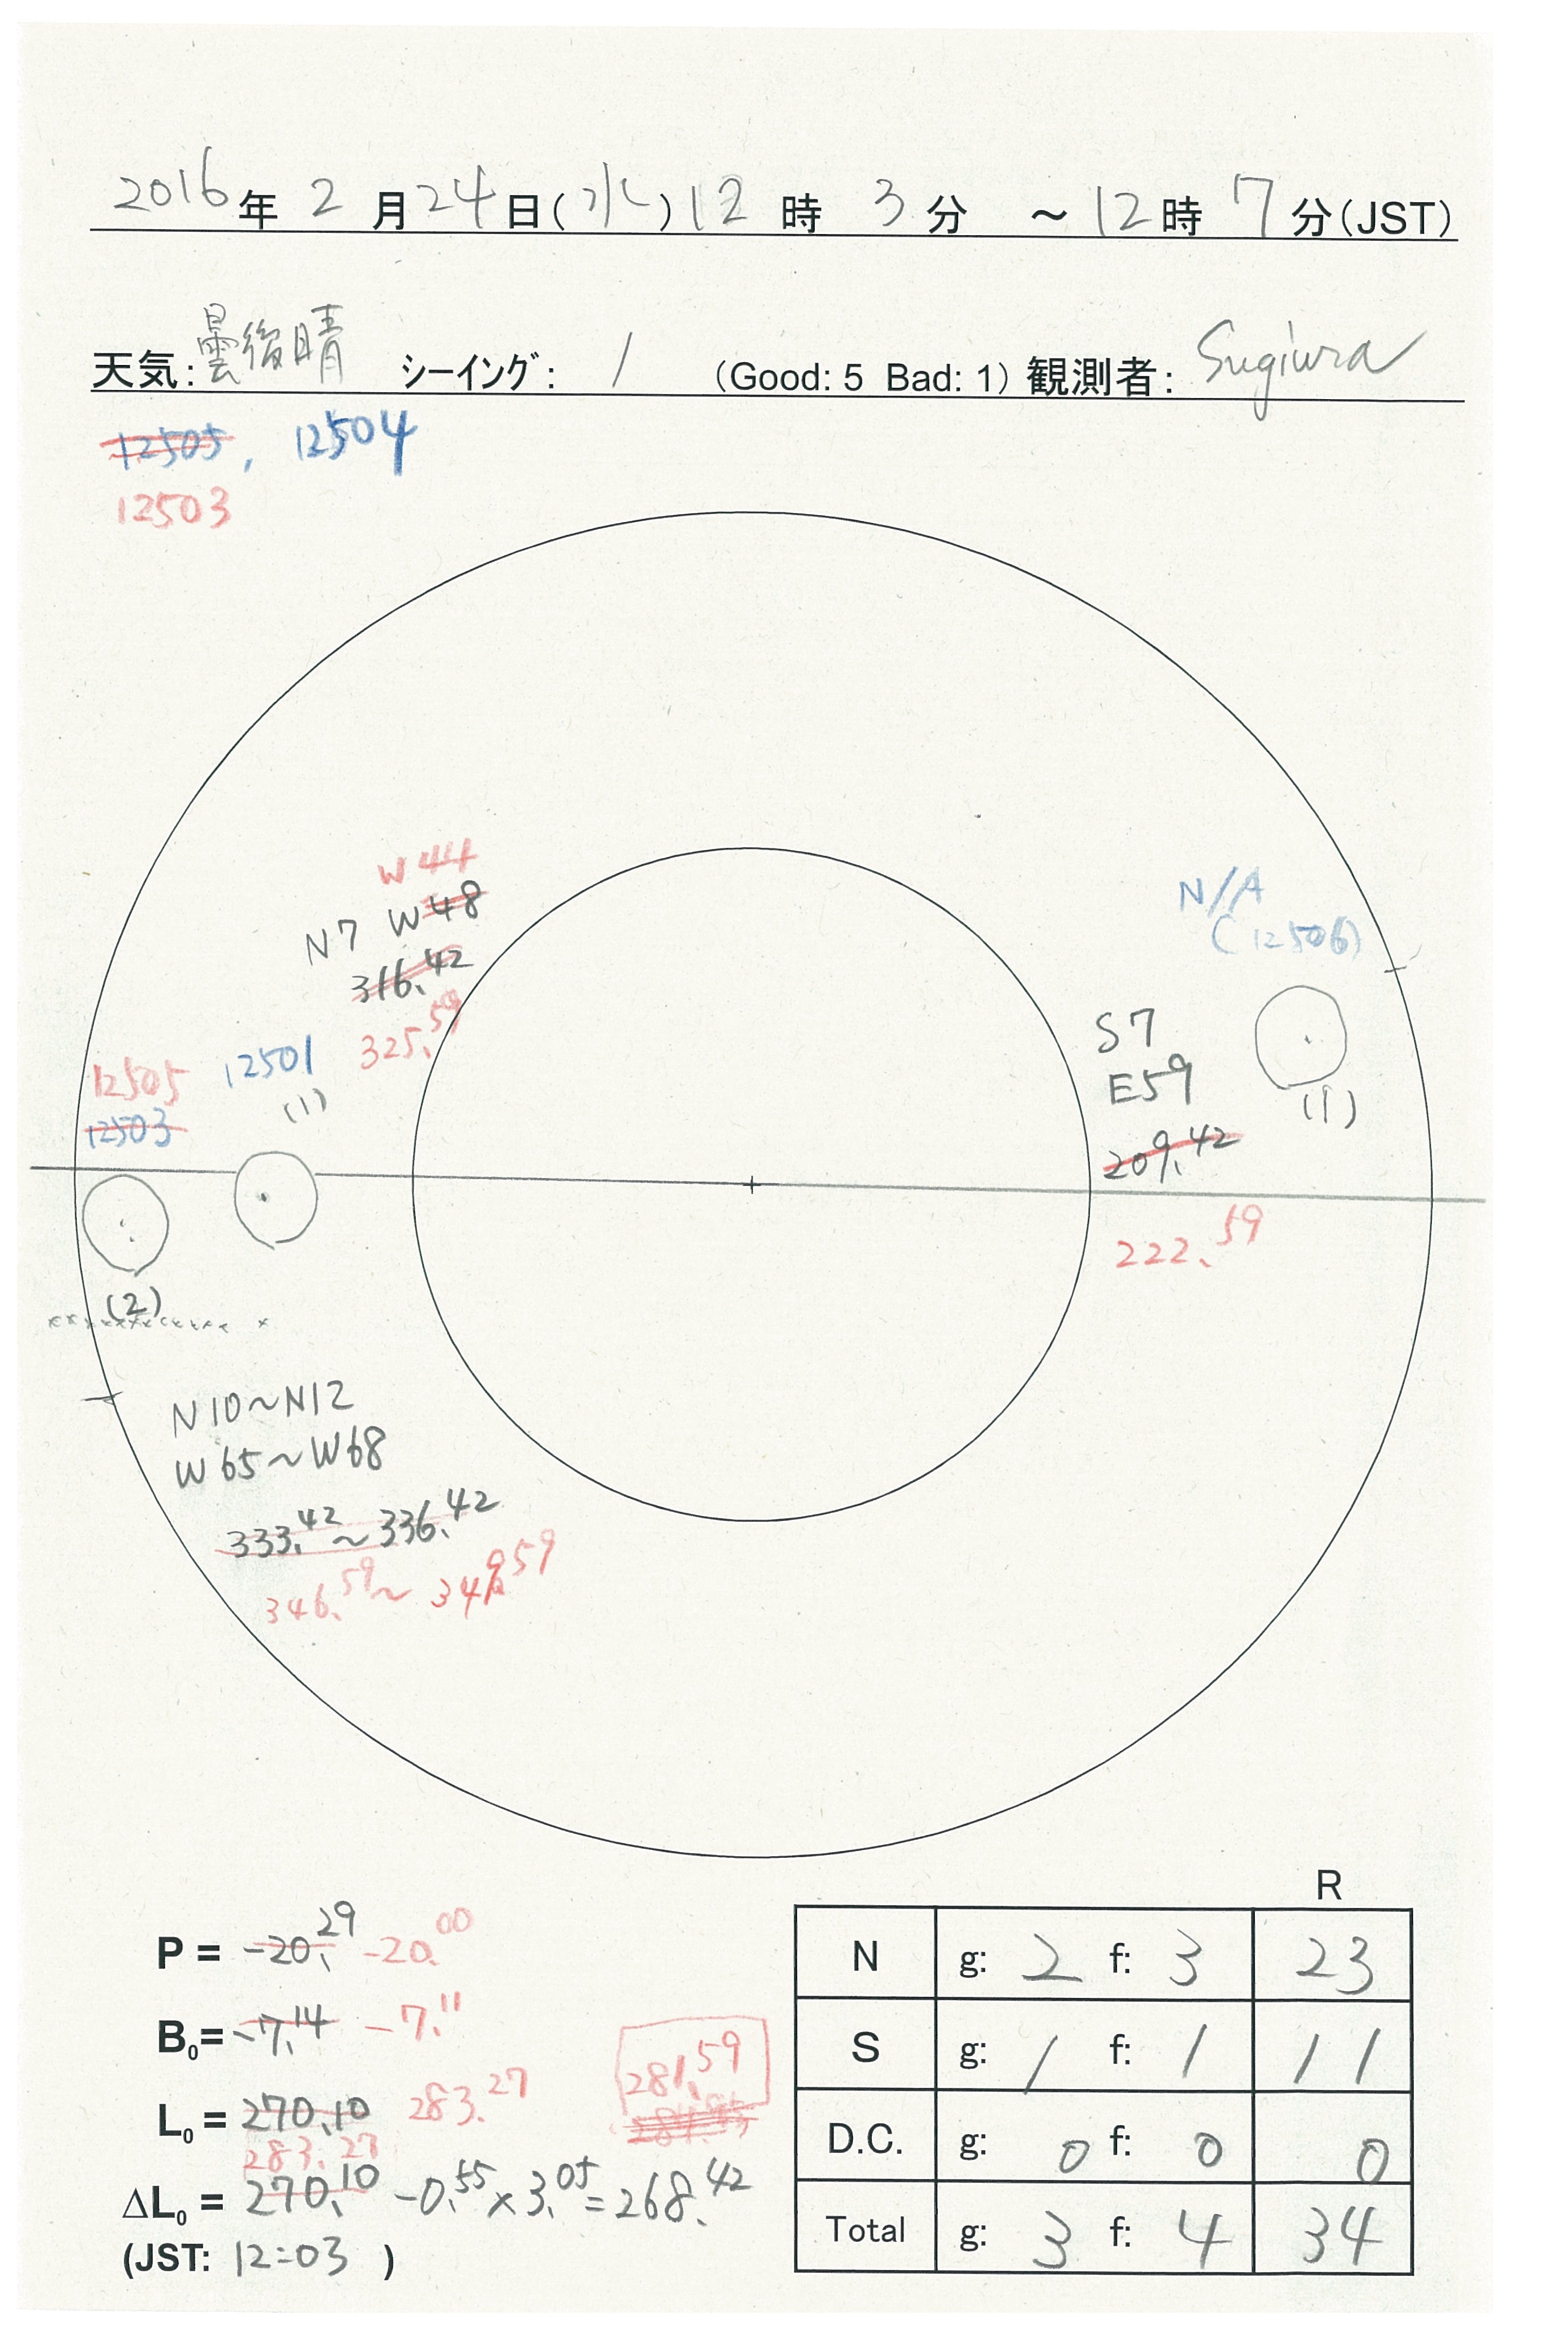 2016年 2月24日(水)12時 3分 ～12時 7分(JST)
天気:曇後晴 シーイング: 1 (Good: 5 Bad: 1) 観測者: Sugiura
12505, 12504
12503
W44
N7 W48
316.42
325.59
N/A
(12506)
S7
E59
(1)
209.42
222.59
12505
12503
12501
(1)
(2)
N10~N12
W65~W68
333.42~336.42
346.59~349.59
P = -20.29 -20.00
B0= -7.14 -7.11
L0 = 270.10 283.27
283.27
281.59
ΔL0 = 270.10 -0.55×3.05=268.42
(JST: 12:03 )
R
N g: 2 f: 3 23
S g: 1 f: 1 11
D.C. g: 0 f: 0 0
Total g: 3 f: 4 34